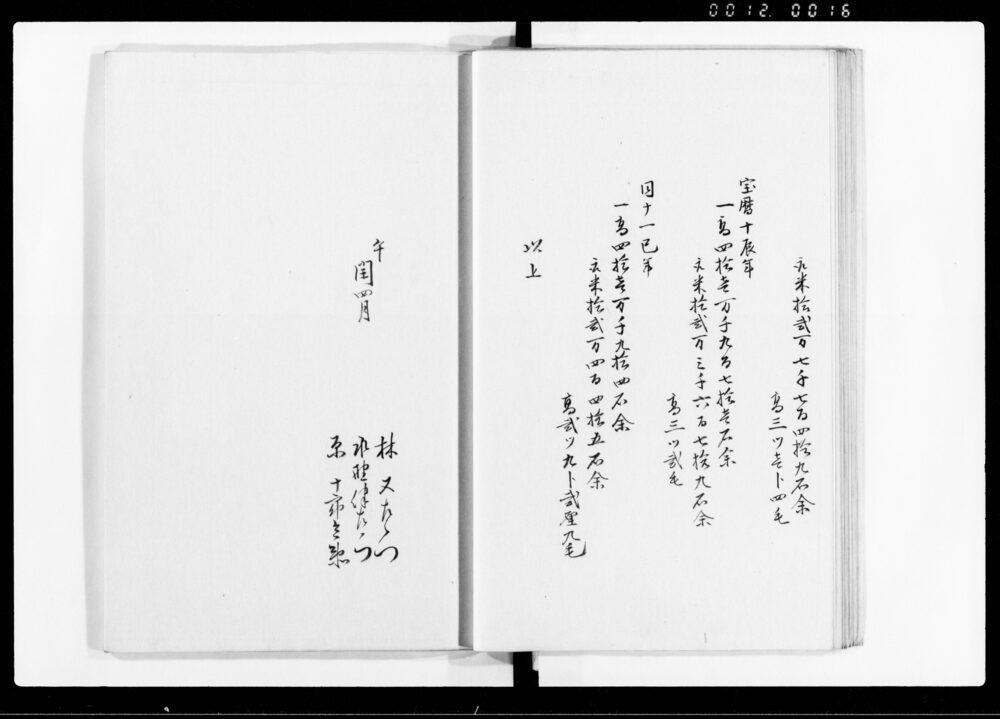 0012. 0016
取米拾弐万七千七百四拾九石余
高三ツ壱卜四毛
宝暦十辰年
一高四拾壱万千九百七拾壱石余
取米拾弐万三千六百七拾九石余
高三ツ弐毛
同十一巳年
一高四拾壱万千九拾四石余
取米拾弐万四百四拾五石余
高弐ツ九卜弐厘九毛
以上
午
閏四月
林 又左衛門
伝左衛門
十郎兵衛